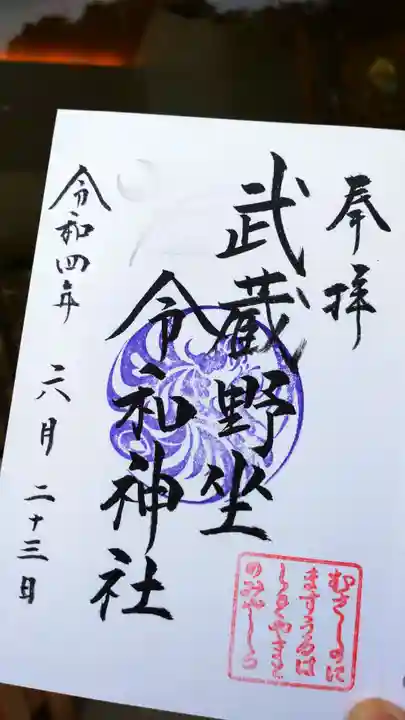 奉拝
武蔵野坐
令和神社
令和四年 六月 二十三日
むさしのに
ますうるは
しきやまと
のみやしろ